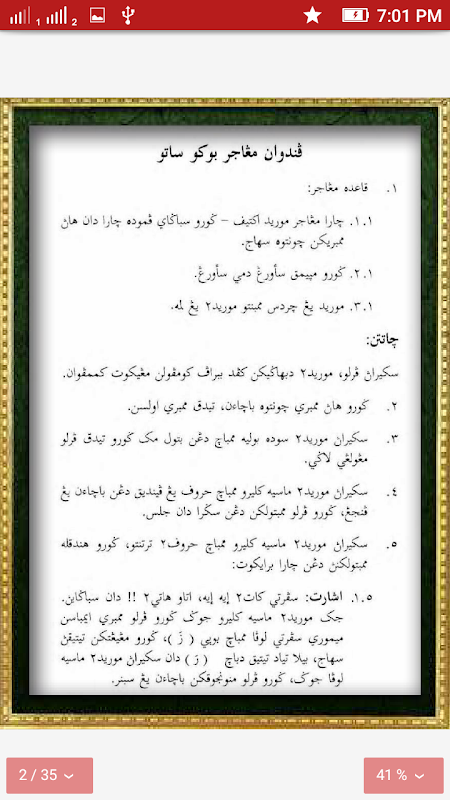 1 2 7:01 PM
ڤندوان مڠاجر بوكو ساتو
١. قاعده مڠاجر:
١.١. چارا مڠاجر موريد اكتيف – ݢورو سباݢاي ڤموده چارا دان هاڽ
ممبريكن چونتوه سهاج.
٢.١. ݢورو مڽيمق سأورڠ دمي سأورڠ.
٣.١. موريد يڠ چردس ممبنتو موريد٢ يڠ لمه.
چاتتن:
سكيراڽ ڤرلو، موريد٢ دبهاݢيكن كڤد ببراڤ كومڤولن مڠيكوت كممڤوان.
٢. ݢورو هاڽ ممبري چونتوه باچاءن، تيدق ممبري اولسن.
٣. سكيراڽ موريد٢ سوده بوليه ممباچ دڠن بتول مک ݢورو تيدق ڤرلو
مڠولڠي لاݢي.
٤. سكيراڽ موريد٢ ماسيه كليرو ممباچ حروف يڠ ڤينديق دڠن باچاءن يڠ
ڤنجڠ، ݢورو ڤرلو ممبتولكن دڠن سݢرا دان جلس.
٥. سكيراڽ موريد٢ ماسيه كليرو ممباچ حروف٢ ترتنتو، ݢورو هندقله
ممبتولكن دڠن چارا برايكوت:
١.٥. اشارت: سڤرتي كات٢ إيه إيه، اتاو هاتي٢ !! دان سباݢاين.
جک موريد٢ ماسيه كليرو جوݢ ݢورو ڤرلو ممبري ايمباسن
ميموري سڤرتي لوڤا ممباچ بوڽي ( زَ )، ݢورو مڠيڠتكن تيتيقڽ
سهاج، بيلا تياد تيتيق دباچ ( رَ ) دان سكيراڽ موريد٢ ماسيه
لوڤا جوݢ، ݢورو ڤرلو منونجوقكن باچاءن يڠ سبنر.
2 / 35
41 %